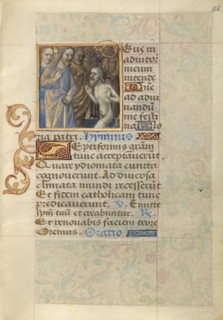 Eus in
adiutor
meum
intende
Dñe
ad adiu
uandu
me festi
na Glo
ria patri. Hymnus
Septiformis gräm
tunc acceperunt
Quare ydiomata cuncta
cognouerunt. Ad diuersa
climata mundi recesserūt
Et fidem catholicam tunc
predicauerunt. V. Emitte
spm tuū et creabuntur. R.
Et renouabis faciem terre
Oremus Oratio